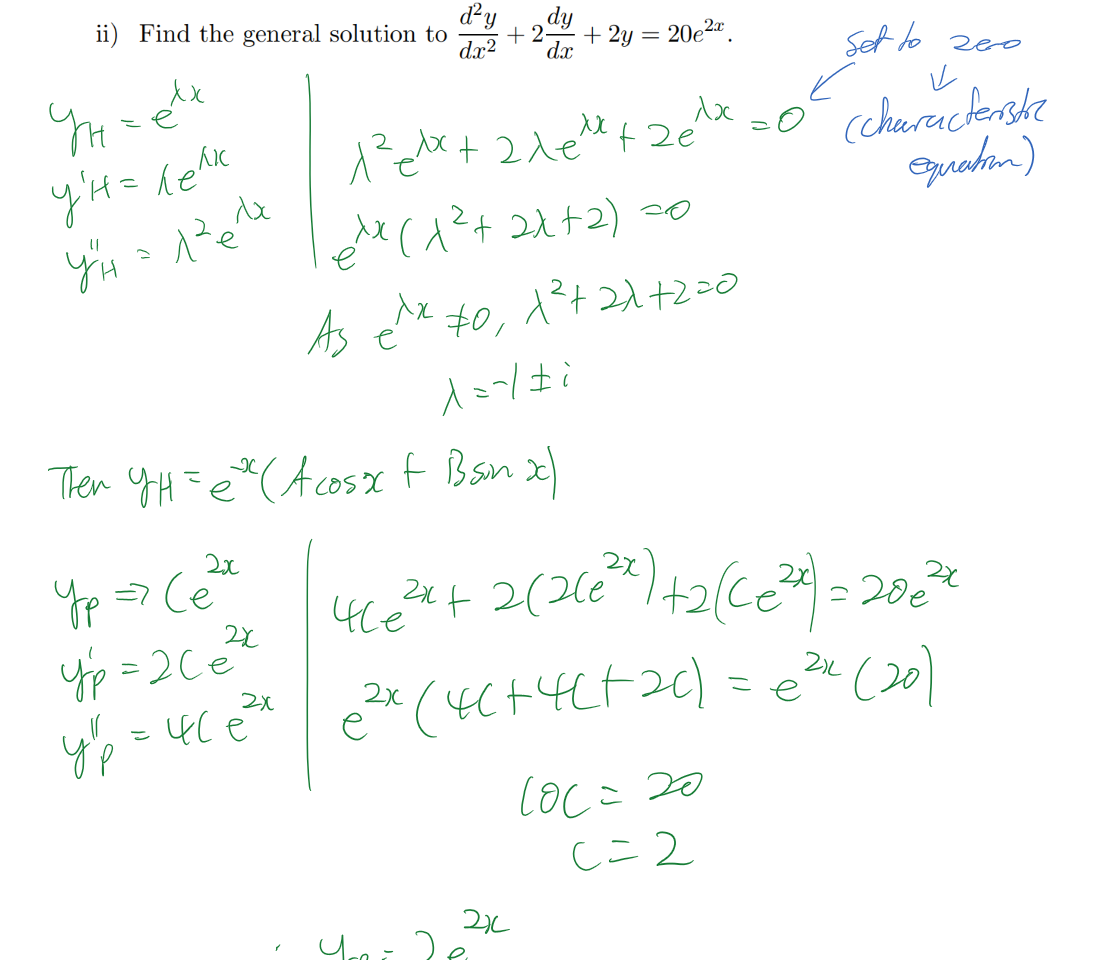 ii) Find the general solution to d²y/dx² + 2 dy/dx + 2y = 20e^{2x}.
set to zero
(characteristic
equation)
y_H = e^{λx}
y'_H = λe^{λx}
y''_H = λ²e^{λx}
λ²e^{λx} + 2λe^{λx} + 2e^{λx} = 0
e^{λx}(λ² + 2λ + 2) = 0
As e^{λx} ≠ 0, λ² + 2λ + 2 = 0
λ = -1 ± i
Then y_H = e^{-x}(A cos x + B sin x)
y_p => Ce^{2x}
y'_p = 2Ce^{2x}
y''_p = 4Ce^{2x}
4Ce^{2x} + 2(2Ce^{2x}) + 2(Ce^{2x}) = 20e^{2x}
e^{2x}(4C + 4C + 2C) = e^{2x}(20)
10C = 20
C = 2
y_p = 2e^{2x}